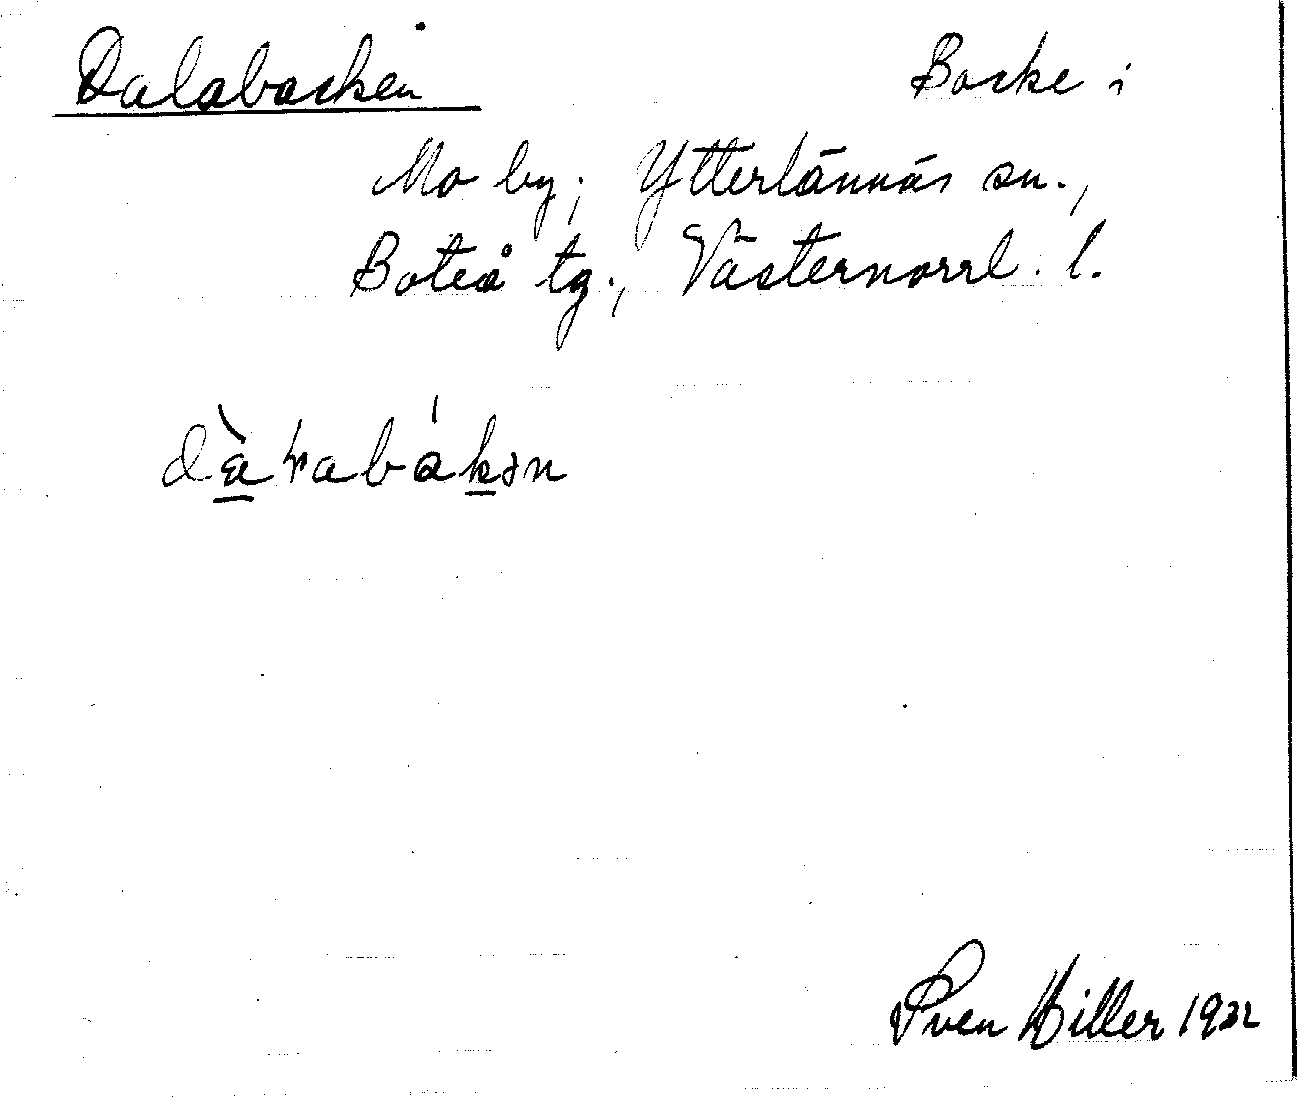 Dalabacken Backe i
Mo by, Ytterlännäs sn.,
Boteå tg., Västernorrl. l.
dàɽabákən
Sven Hiller 1932